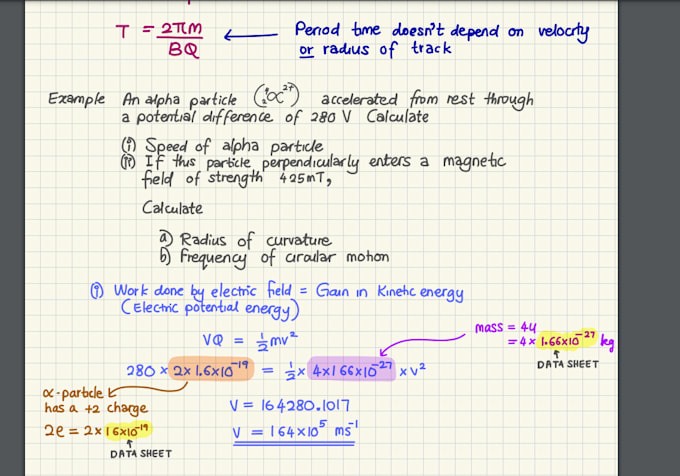 T = 2πm / BQ ← Period time doesn't depend on velocity
or radius of track
Example An alpha particle ( α ) accelerated from rest through
a potential difference of 280 V Calculate
(i) Speed of alpha particle
(ii) If this particle perpendicularly enters a magnetic
field of strength 425mT,
Calculate
a) Radius of curvature
b) Frequency of circular motion
(i) Work done by electric field = Gain in Kinetic energy
(Electric potential energy)
mass = 4u
= 4 × 1.66×10⁻²⁷ kg
DATA SHEET
VQ = ½mv²
280 × 2×1.6×10⁻¹⁹ = ½ × 4×1 66×10⁻²⁷ × v²
α-particle
has a +2 charge
2e = 2×1 6×10⁻¹⁹
DATA SHEET
V = 164280.1017
V = 1 64×10⁵ ms⁻¹